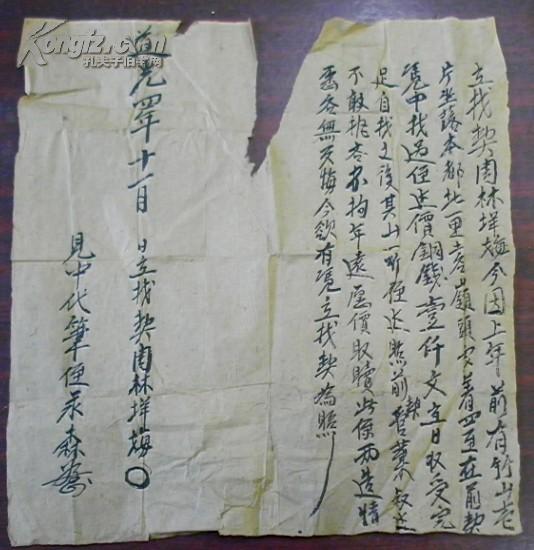 立找契周林垟梅今因上年前有竹山壱
片坐落本都北更 嶺頭安着四至在前契
憑中找過侄 價銅錢壹仟文立日收受完
足自找之後其山一听侄 照前契管業叔
不敢 吝不拘年遠愿價取贖此係两造情
愿各無反悔今欲有憑立找契為照
道光 年十一月 日立找契周林垟梅〇
見中代筆侄永森
Kongfz.com
孔夫子旧书网